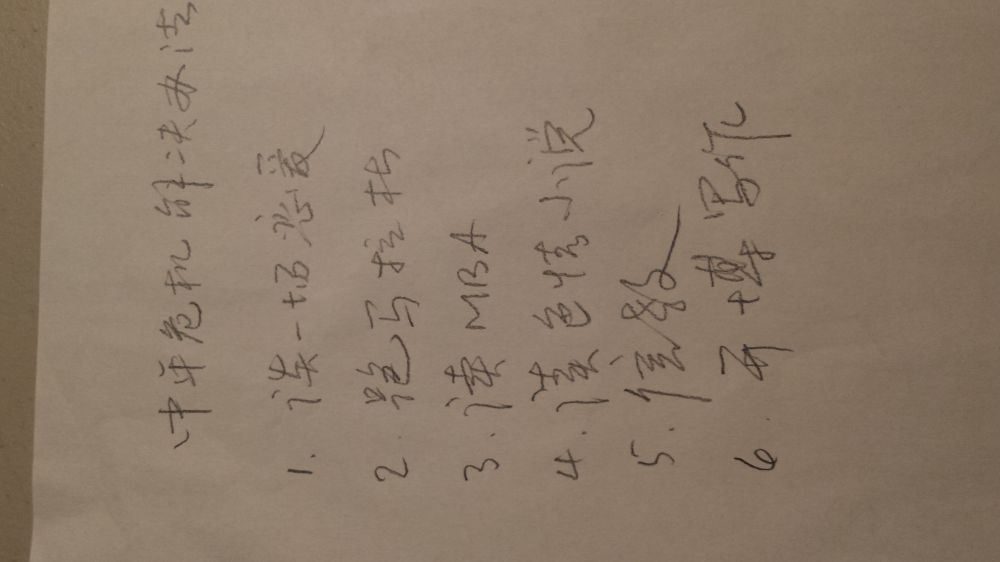 中年危机解决办法
1. 谈一场恋爱
2. 跑马拉松
3. 读MBA
4. 读色情小说
5. 信教
6. 开博写作